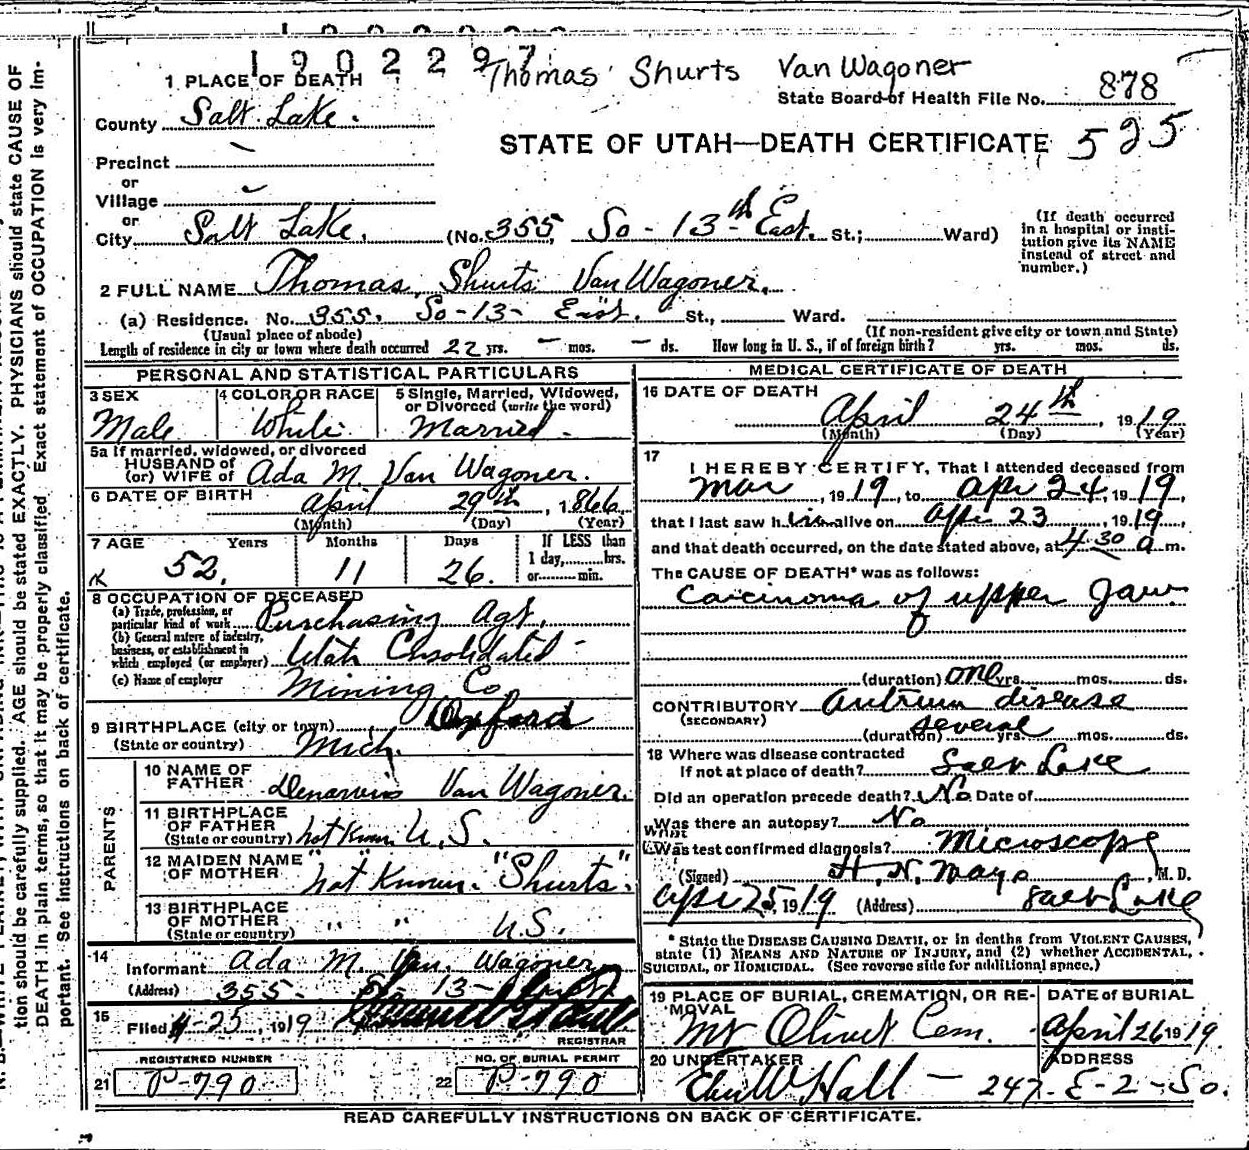 1902297
Thomas Shurts Van Wagoner
1 PLACE OF DEATH
State Board of Health File No. 878
County Salt Lake.
STATE OF UTAH—DEATH CERTIFICATE 525
Precinct
or
Village
or
City Salt Lake. (No. 355 So - 13th East. St.; Ward)
(If death occurred in a hospital or institution give its NAME instead of street and number.)
2 FULL NAME Thomas Shurts Van Wagoner.
(a) Residence. No. 355. So - 13 - East. St., Ward.
(Usual place of abode) (If non-resident give city or town and State)
Length of residence in city or town where death occurred 22 yrs. - mos. - ds. How long in U. S., if of foreign birth? yrs. mos. ds.
PERSONAL AND STATISTICAL PARTICULARS
3 SEX
Male
4 COLOR OR RACE
White
5 Single, Married, Widowed, or Divorced (write the word)
Married.
5a If married, widowed, or divorced
HUSBAND of
(or) WIFE of Ada M. Van Wagoner.
6 DATE OF BIRTH
April 29th, 1866
(Month) (Day) (Year)
7 AGE Years Months Days If LESS than
1 day, hrs.
or min.
52. 11 26.
8 OCCUPATION OF DECEASED
(a) Trade, profession, or
particular kind of work Purchasing Agt.
(b) General nature of industry,
business, or establishment in
which employed (or employer) Utah Consolidated -
(c) Name of employer Mining Co
9 BIRTHPLACE (city or town) Oxford
(State or country) Mich.
PARENTS
10 NAME OF
FATHER Van Wagoner.
11 BIRTHPLACE
OF FATHER
(State or country) not known U.S.
12 MAIDEN NAME
OF MOTHER "not" Known. "Shurts".
13 BIRTHPLACE
OF MOTHER
(State or country) " " U.S.
14
Informant Ada M. Van Wagoner
(Address) 355. So. 13 - East
15
Filed 4-25, 1919
REGISTRAR
REGISTERED NUMBER
21 P-790
NO. OF BURIAL PERMIT
22 P-790
MEDICAL CERTIFICATE OF DEATH
16 DATE OF DEATH
April 24th, 1919
(Month) (Day) (Year)
17
I HEREBY CERTIFY, That I attended deceased from
Mar, 1919, to Apr 24, 1919,
that I last saw him alive on Apr 23, 1919,
and that death occurred, on the date stated above, at 4 30 a m.
The CAUSE OF DEATH* was as follows:
Carcinoma of upper Jaw
(duration) one yrs. mos. ds.
CONTRIBUTORY Antrum disease
(SECONDARY)
(duration) several yrs. mos. ds.
18 Where was disease contracted
If not at place of death? Salt Lake
Did an operation precede death? No Date of
Was there an autopsy? No
What
Was test confirmed diagnosis? Microscope
(Signed) H. N. Mayo, M. D.
Apr 25, 1919 (Address) Salt Lake
* State the DISEASE CAUSING DEATH, or in deaths from VIOLENT CAUSES,
state (1) MEANS AND NATURE OF INJURY, and (2) whether ACCIDENTAL,
SUICIDAL, or HOMICIDAL. (See reverse side for additional space.)
19 PLACE OF BURIAL, CREMATION, OR REMOVAL
Mt Olivet Cem.
DATE of BURIAL
April 26 1919.
20 UNDERTAKER
Eber W Hall -
ADDRESS
247. E - 2 - So.
READ CAREFULLY INSTRUCTIONS ON BACK OF CERTIFICATE.
tion should be carefully supplied. AGE should be stated EXACTLY. PHYSICIANS should state CAUSE OF
DEATH in plain terms, so that it may be properly classified. Exact statement of OCCUPATION is very im-
portant. See instructions on back of certificate.